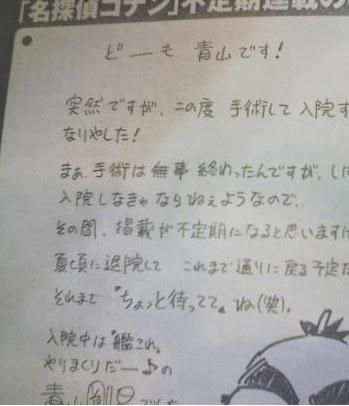 「名探偵コナン」不定期連載の
どーも 青山です！
突然ですが、この度 手術して 入院す
なりやした！
まぁ、手術は無事 終わったんですが、しば
入院しなきゃ ならねぇようなので、
その間、掲載が不定期になると思いますけ
夏頃に退院して これまで通りに戻る予定だ
それまで "ちょっと待ってて" ね(笑)。
入院中は"艦これ"
やりまくりだー♪の
青山剛昌でした